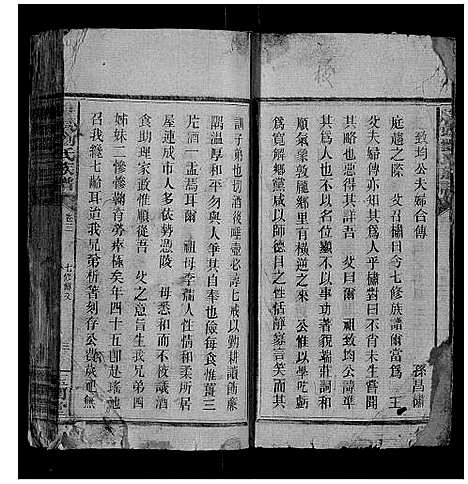 致均公夫婦合傳
孫昌鏽
庭趨之際 父召鏽曰今七修族譜爾當爲 王
父夫婦傳亦知其爲人乎鏽對曰不肖未生嘗聞
其略也惡得其詳 父曰爾 祖致均公諱準
其生平未嘗以名位顯不以事功著貌端莊詞和
順氣柔敦龐鄉里有橫逆之來 公惟以學吃虧
爲寬解鄉黨咸以師德目之性恬靜寡言笑而其
訓子弟也切酒後唾壺必諄七戒以勤耕讀飭廉
隅溫厚和平勿與人爭其自奉也儉每食惟薑三
片酒一盂爲耳爾 祖母李孺人性情和柔所居
屋連成市人多依勢憑陵 母悉而不校議酒
食助理家政惟順從吾 父之意旨生我兄弟四
姊妹二慘慘鞠育勞瘁極矣年四十五卽赴瑤池
召我纔七齡耳迨我兄弟析箸刻存公費歲祀無
氏族譜
卷三
七修傳文